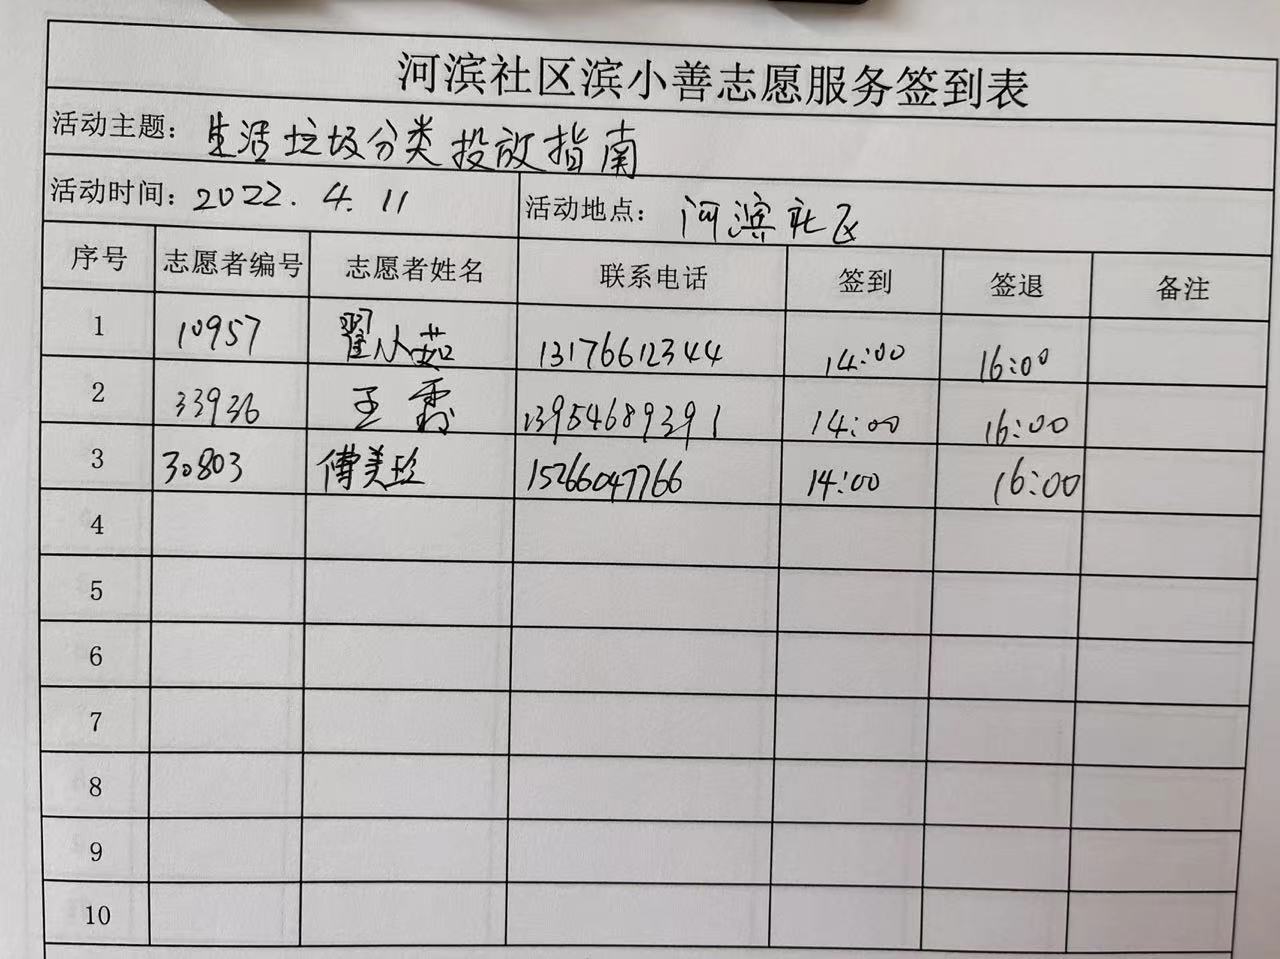 河滨社区滨小善志愿服务签到表
活动主题：生活垃圾分类投放指南
活动时间：2022.4.11 活动地点：河滨社区
序号 志愿者编号 志愿者姓名 联系电话 签到 签退 备注
1 10957 翟从茹 13176612344 14:00 16:00
2 33936 王霞 13954689391 14:00 16:00
3 30803 傅美玲 15266047766 14:00 16:00
4
5
6
7
8
9
10